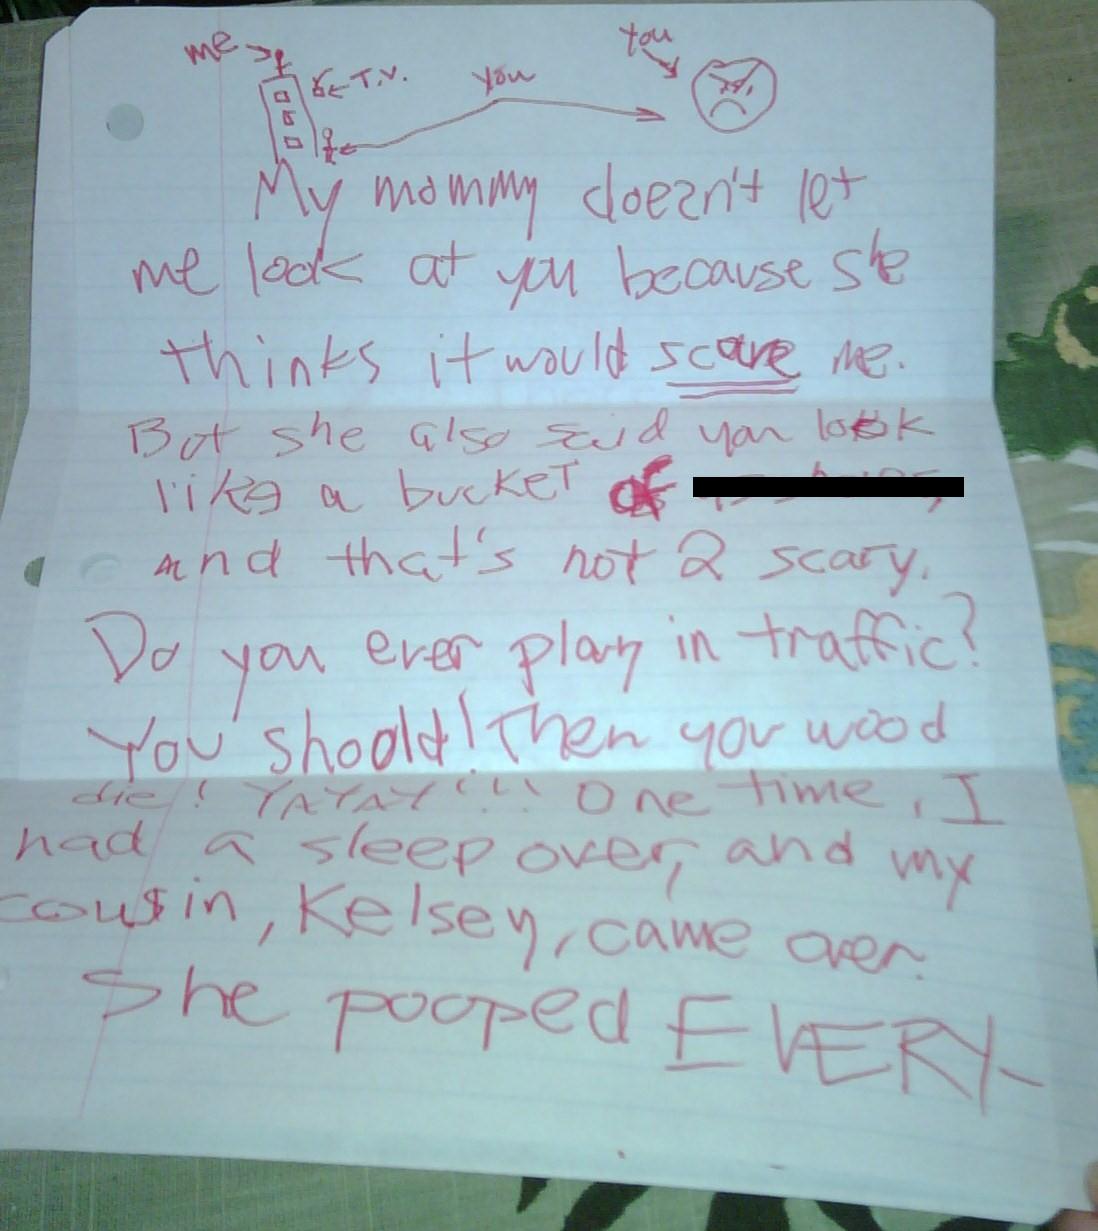 me
you
T.V.
you
My mommy doezn't let
me look at you because she
thinks it would scare me.
But she also said you look
like a bucket of
and that's not 2 scary.
Do you ever play in traffic?
You should! Then you wood
die! YAYAY!!! One time, I
had a sleep over, and my
cousin, Kelsey, came over.
She pooped EVERY-